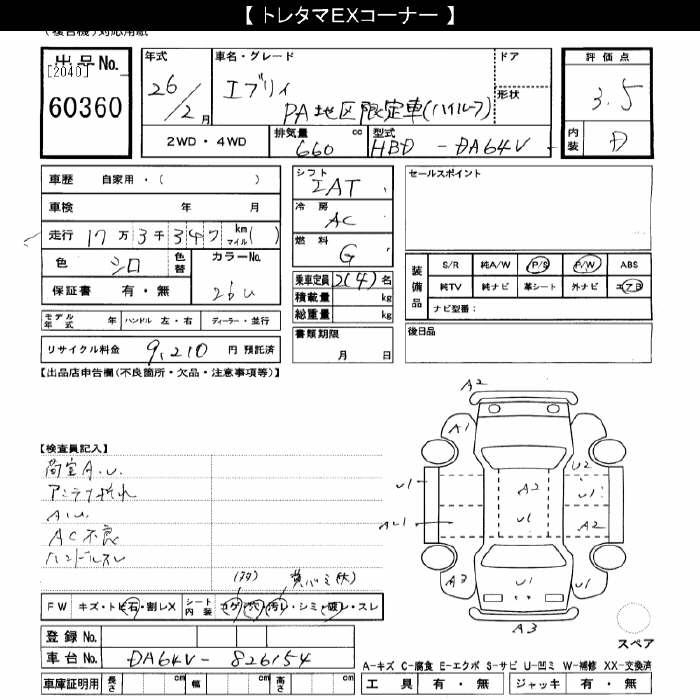 【 トレタマEXコーナー 】
(複合機)対応用紙
出品No.
[2040]
60360
年式
26/2月
車名・グレード
エブリィ
PA地区限定車(ハイルーフ)
ドア
形状
評価点
3.5
内装 D
2WD・4WD
排気量 660 cc
型式 HBD - DA64V
車歴 自家用・( )
車検 年 月
走行 17万3千347 km マイル( )
色 シロ 色替
カラーNo.
26U
保証書 有・無
シフト
IAT
冷房
AC
燃料
G
乗車定員 2(4)名
積載量 kg
総重量 kg
セールスポイント
装備品
S/R 純A/W P/S P/W ABS
純TV 純ナビ 革シート 外ナビ エアB
ナビ型番:
モデル年式 年 ハンドル 左・右 ディーラー・並行
リサイクル料金 9,210 円 預託済
書類期限
月 日
後日品
【出品店申告欄(不良箇所・欠品・注意事項等)】
【検査員記入】
荷室A.U.
アンテナ折れ
A.U.
AC不良
ハンドルスレ
A2
A1
U2
U1
A2
U1
U1
AU1
A2
A3
U1
U1
A3
スペア
FW キズ・トビ石・割レX
シート内装 コゲ・穴・汚レ・シミ・破レ・スレ
登録No.
車台No. DA64V-826154
車庫証明用 長さ cm 幅 cm 高さ cm
A-キズ C-腐食 E-エクボ S-サビ U-凹ミ W-補修 XX-交換済
工具 有・無 ジャッキ 有・無